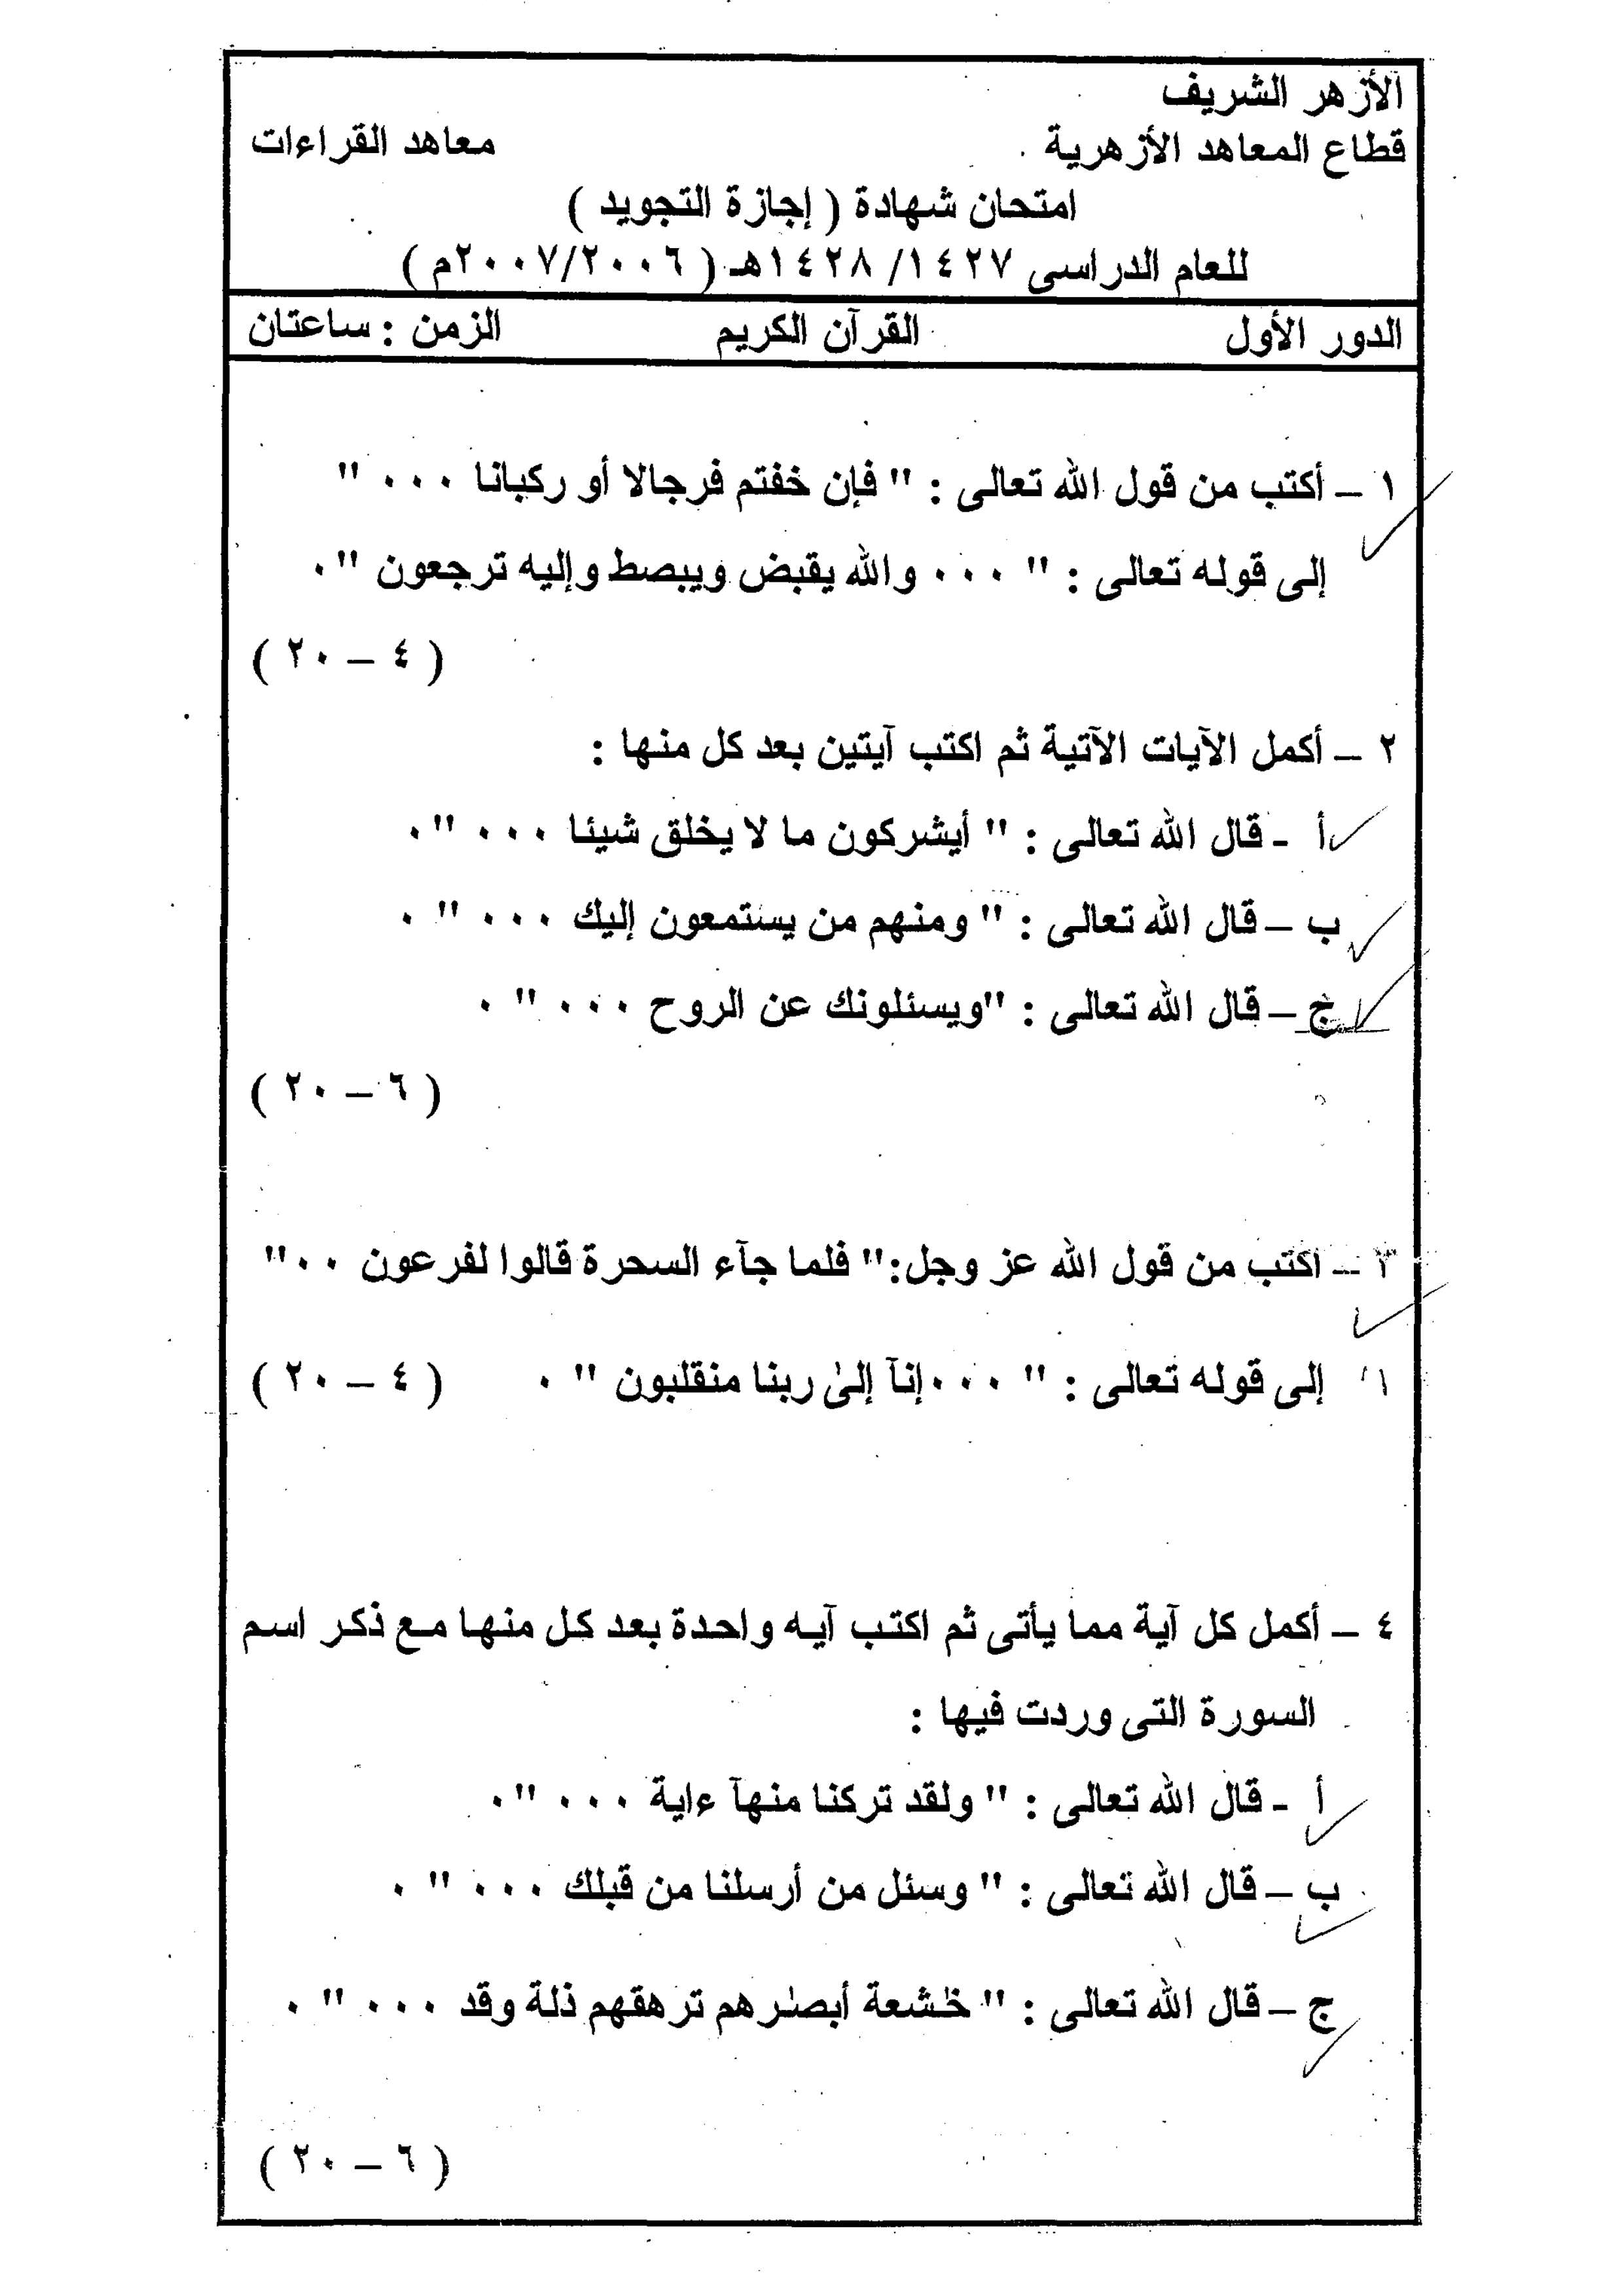 الأزهر الشريف
قطاع المعاهد الأزهرية معاهد القراءات
امتحان شهادة ( إجازة التجويد )
للعام الدراسى ١٤٢٧/ ١٤٢٨هـ ( ٢٠٠٧/٢٠٠٦م )
الدور الأول القرآن الكريم الزمن : ساعتان
١ – أكتب من قول الله تعالى : " فإن خفتم فرجالا أو ركبانا ٠٠٠ "
إلى قوله تعالى : " ٠٠٠ والله يقبض ويبصط وإليه ترجعون "٠
( ٤ – ٢٠ )
٢ – أكمل الآيات الآتية ثم اكتب آيتين بعد كل منها :
أ - قال الله تعالى : " أيشركون ما لا يخلق شيئا ٠٠٠ "٠
ب – قال الله تعالى : " ومنهم من يستمعون إليك ٠٠٠ " ٠
ج – قال الله تعالى : "ويسئلونك عن الروح ٠٠٠ " ٠
( ٦ – ٢٠ )
٣ – اكتب من قول الله عز وجل:" فلما جآء السحرة قالوا لفرعون ٠٠"
إلى قوله تعالى : " ٠٠٠إنآ إلىٰ ربنا منقلبون " ٠ ( ٤ – ٢٠ )
٤ – أكمل كل آية مما يأتى ثم اكتب آيه واحدة بعد كل منها مع ذكر اسم
السورة التى وردت فيها :
أ - قال الله تعالى : " ولقد تركنا منهآ ءاية ٠٠٠ "٠
ب – قال الله تعالى : " وسئل من أرسلنا من قبلك ٠٠٠ " ٠
ج – قال الله تعالى : " خٰشعة أبصٰرهم ترهقهم ذلة وقد ٠٠٠ " ٠
( ٦ – ٢٠ )